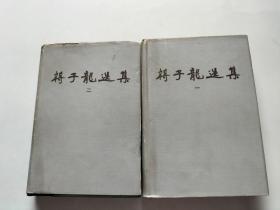 蒋子龍选集
二
蒋子龍选集
一